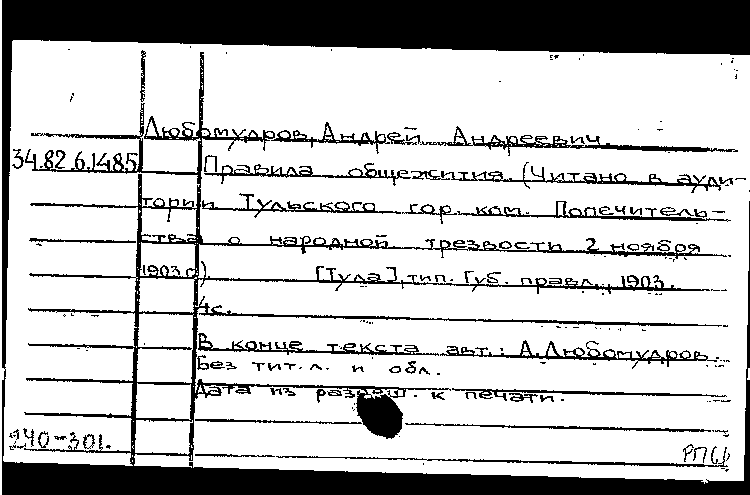 Любомудров, Андрей Андреевич.
34.82.6.1485 Правила общежития. (Читано в ауди-
тории Тульского гор. ком. Попечитель-
ства о народной трезвости 2 ноября
1903 г.). [Тула], тип. Губ. правл., 1903.
4с.
В конце текста авт.: А. Любомудров.
Без тит. л. и обл.
Дата из разреш. к печати.
240-301.